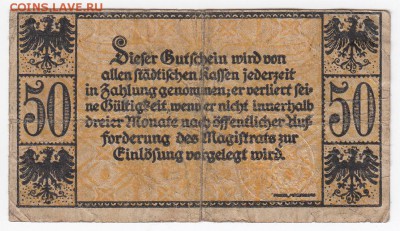 COINS.LAVE.RU
Dieser Gutschein wird von
allen städtischen Kassen jederzeit
in Zahlung genommen; er verliert sei-
ne Gültigkeit, wenn er nicht innerhalb
50
50
dreier Monate nach öffentlicher Auf-
forderung des Magistrats zur
Einlösung vorgelegt wird.